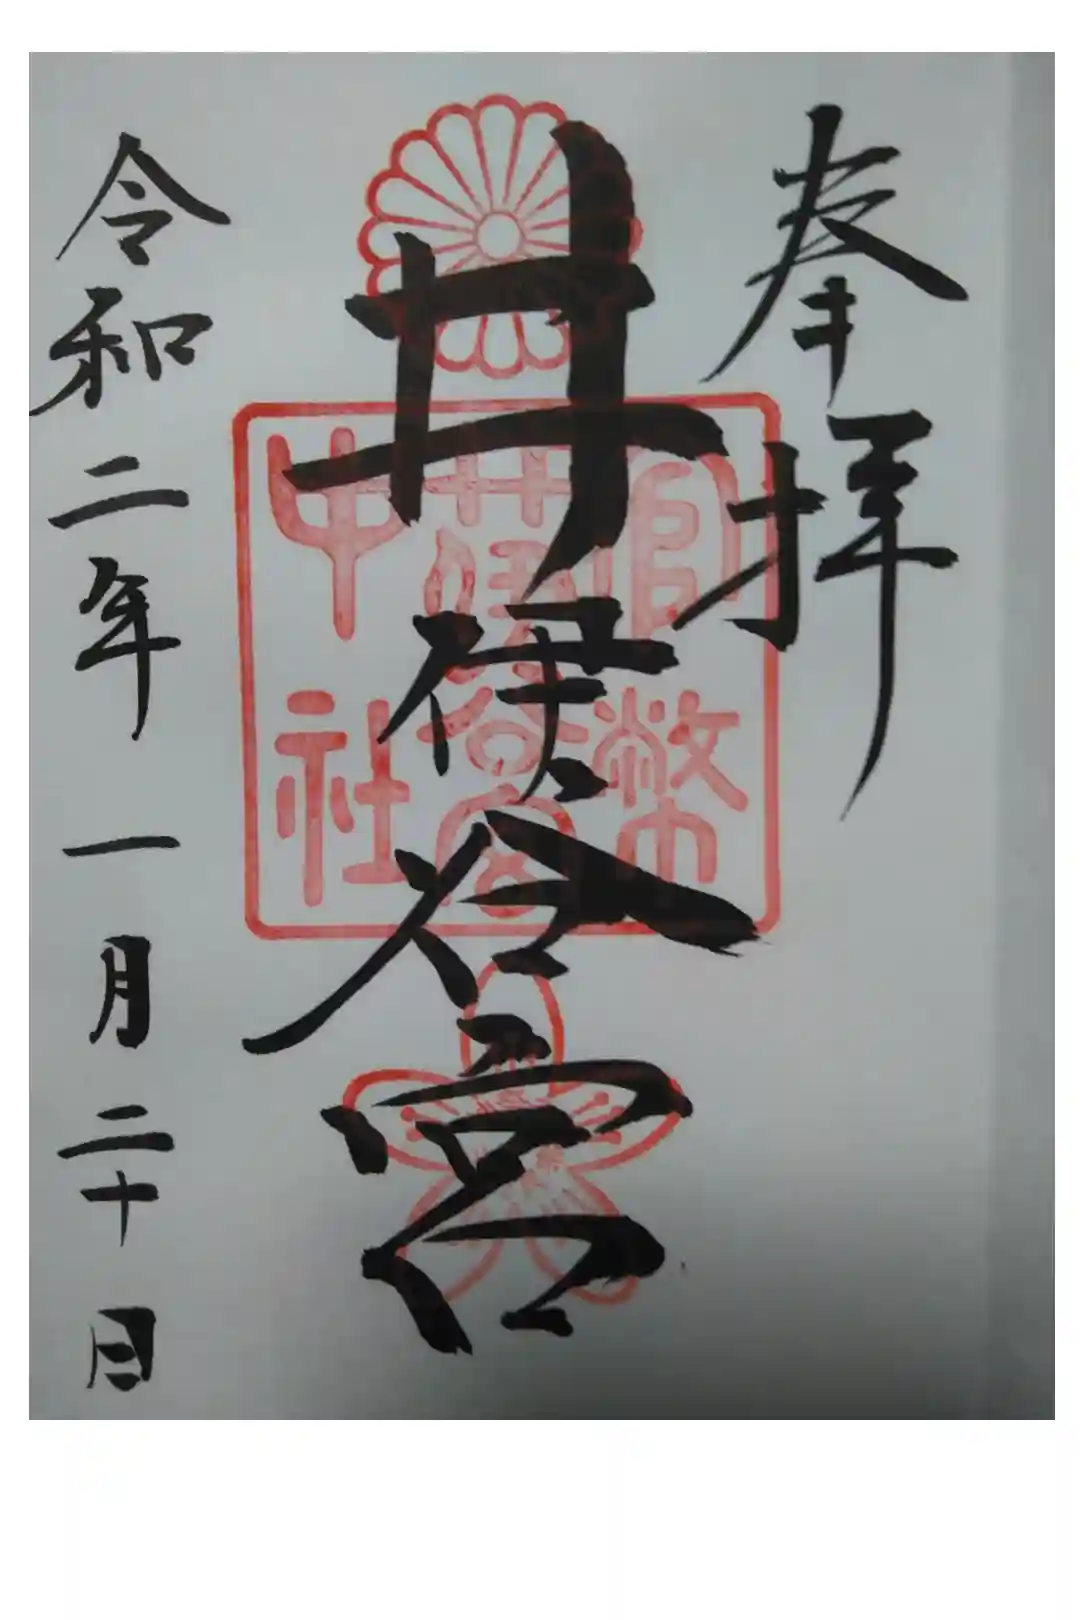 奉拝
井伊谷宮
官幣
井伊谷宮
中社
令和二年 一月二十日